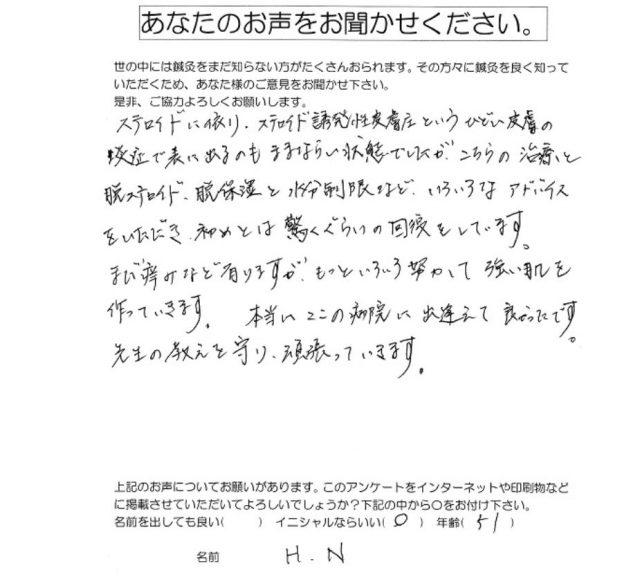 あなたのお声をお聞かせください。
世の中には鍼灸をまだ知らない方がたくさんおられます。その方々に鍼灸を良く知って
いただくため、あなた様のご意見をお聞かせ下さい。
是非、ご協力よろしくお願いします。
ステロイドに依り、ステロイド誘発性皮膚症というひどい皮膚の
炎症で表に出るのもままならい状態でしたが、こちらの治療と
脱ステロイド、脱保湿と水分制限など、いろいろなアドバイス
をいただき、初めとは驚くぐらいの回復をしています。
まだ痒みなど有りますが、もっといろいろ努力して強い肌を
作っていきます。本当にここの病院に出逢えて良かったです。
先生の教えを守り、頑張っていきます。
上記のお声についてお願いがあります。このアンケートをインターネットや印刷物など
に掲載させていただいてよろしいでしょうか?下記の中から○をお付け下さい。
名前を出しても良い( ) イニシャルならいい(○) 年齢(51)
名前 H.N